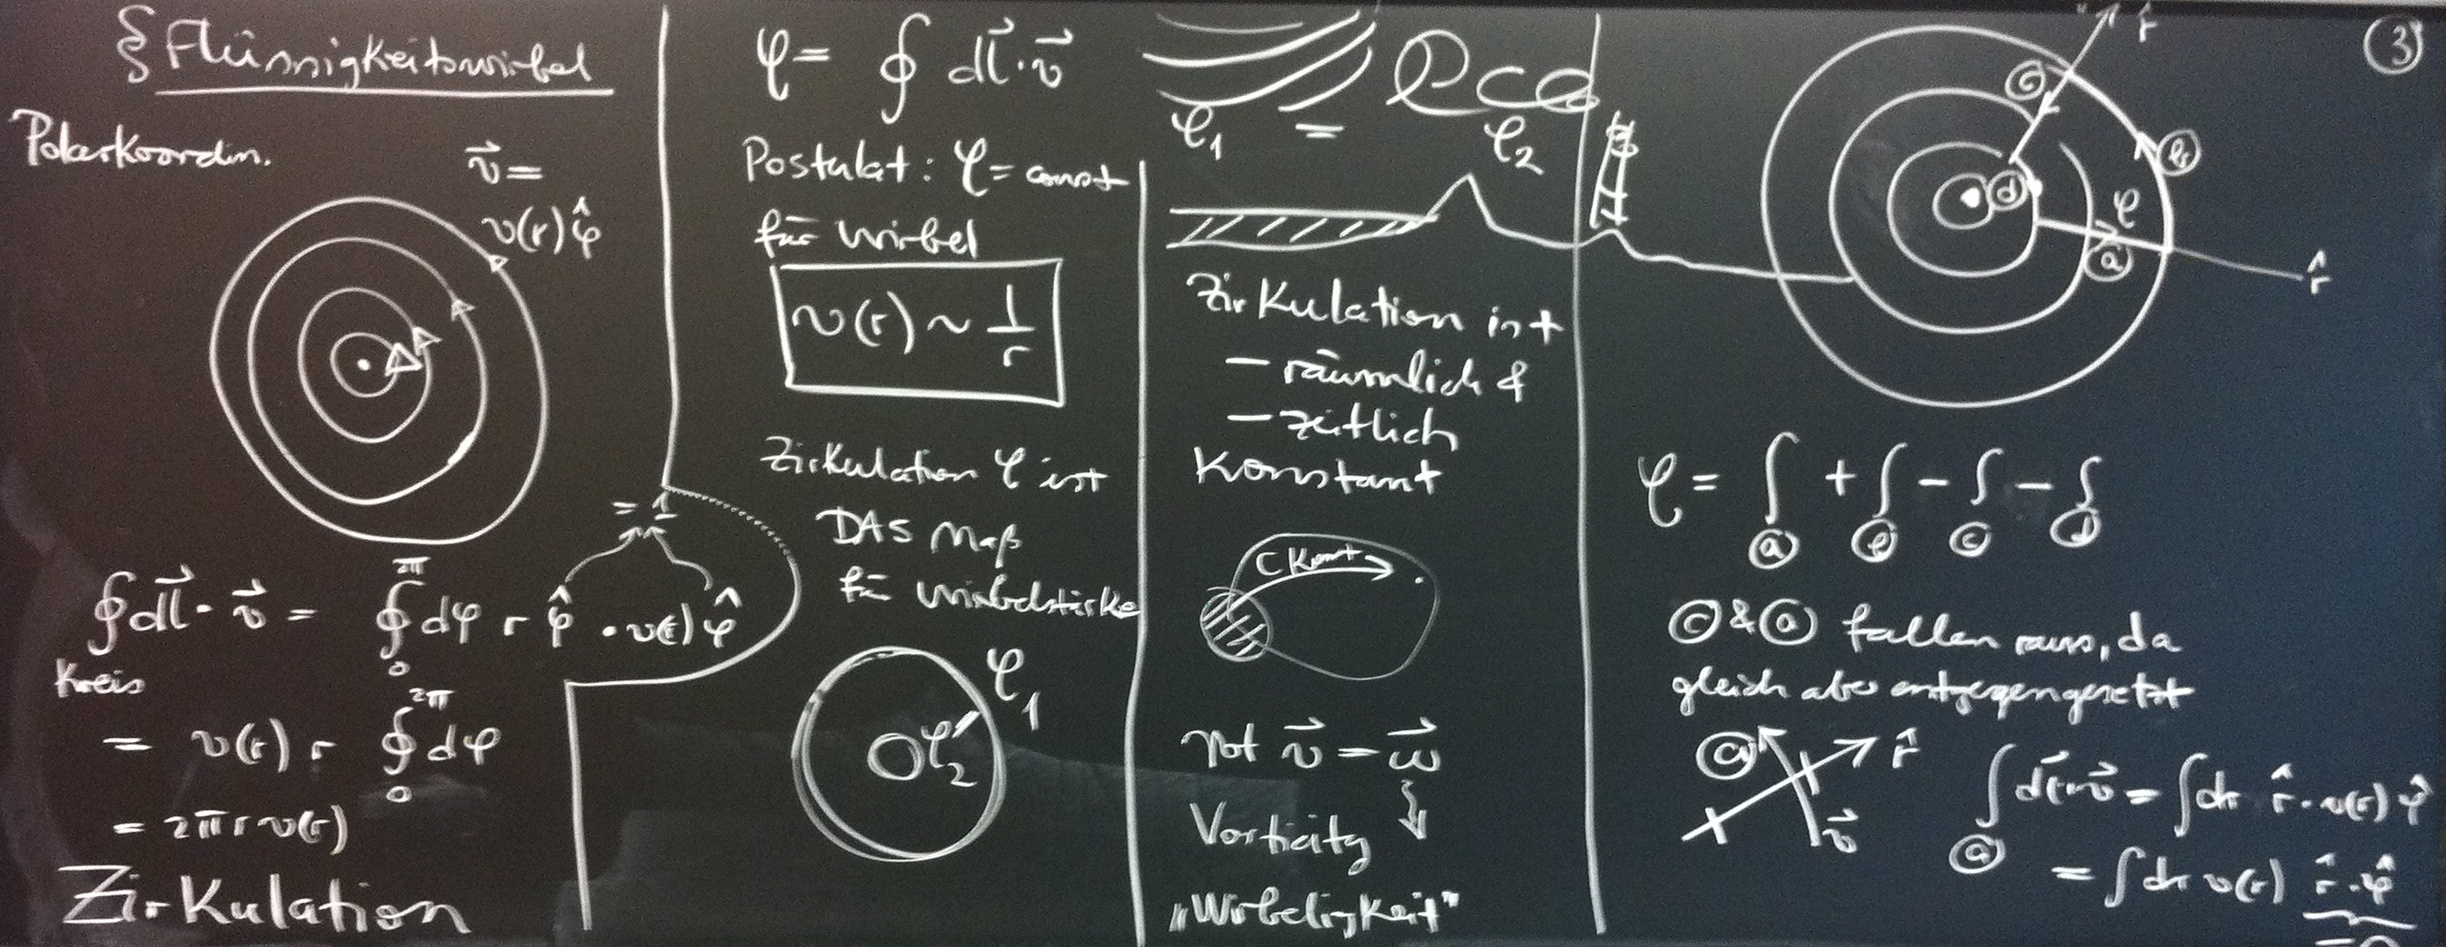 § Flüssigkeitswirbel
Polarkoordin.
v⃗ =
v(r) φ̂
= 1
∮ dl⃗ · v⃗ = ∮ dφ r φ̂ · v(r) φ̂
2π
0
Kreis
= v(r) r ∮ dφ
2π
0
= 2π r v(r)
Zirkulation
φ = ∮ dl⃗ · v⃗
Postulat: φ = const
für Wirbel
v(r) ~ 1/r
Zirkulation φ ist
DAS Maß
für Wirbelstärke
φ₁
φ₂
φ₁ = φ₂
Zirkulation ist
- räumlich &
- zeitlich
Konstant
C Konst
rot v⃗ = ω⃗
Vorticity
„Wirbeligkeit"
③
r̂
ⓒ
ⓑ
ⓓ
φ
ⓐ
r̂
φ = ∫ + ∫ - ∫ - ∫
ⓐ ⓑ ⓒ ⓓ
ⓒ & ⓐ fallen raus, da
gleich aber entgegengesetzt
ⓐ r̂
v⃗
∫ dr⃗ · v⃗ = ∫ dr r̂ · v(r) φ̂
ⓐ
= ∫ dr v(r) r̂ · φ̂
= 0